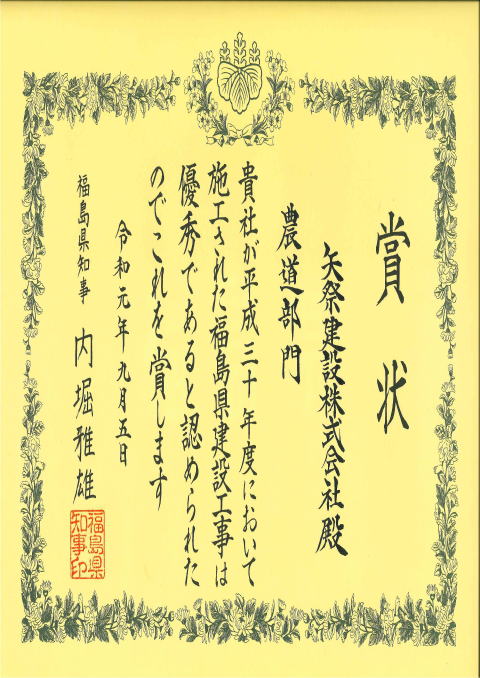 賞状
矢祭建設株式会社殿
農道部門
貴社が平成三十年度において
施工された福島県建設工事は
優秀であると認められた
のでこれを賞します
令和元年九月五日
福島県知事 内堀雅雄
福島県
知事印